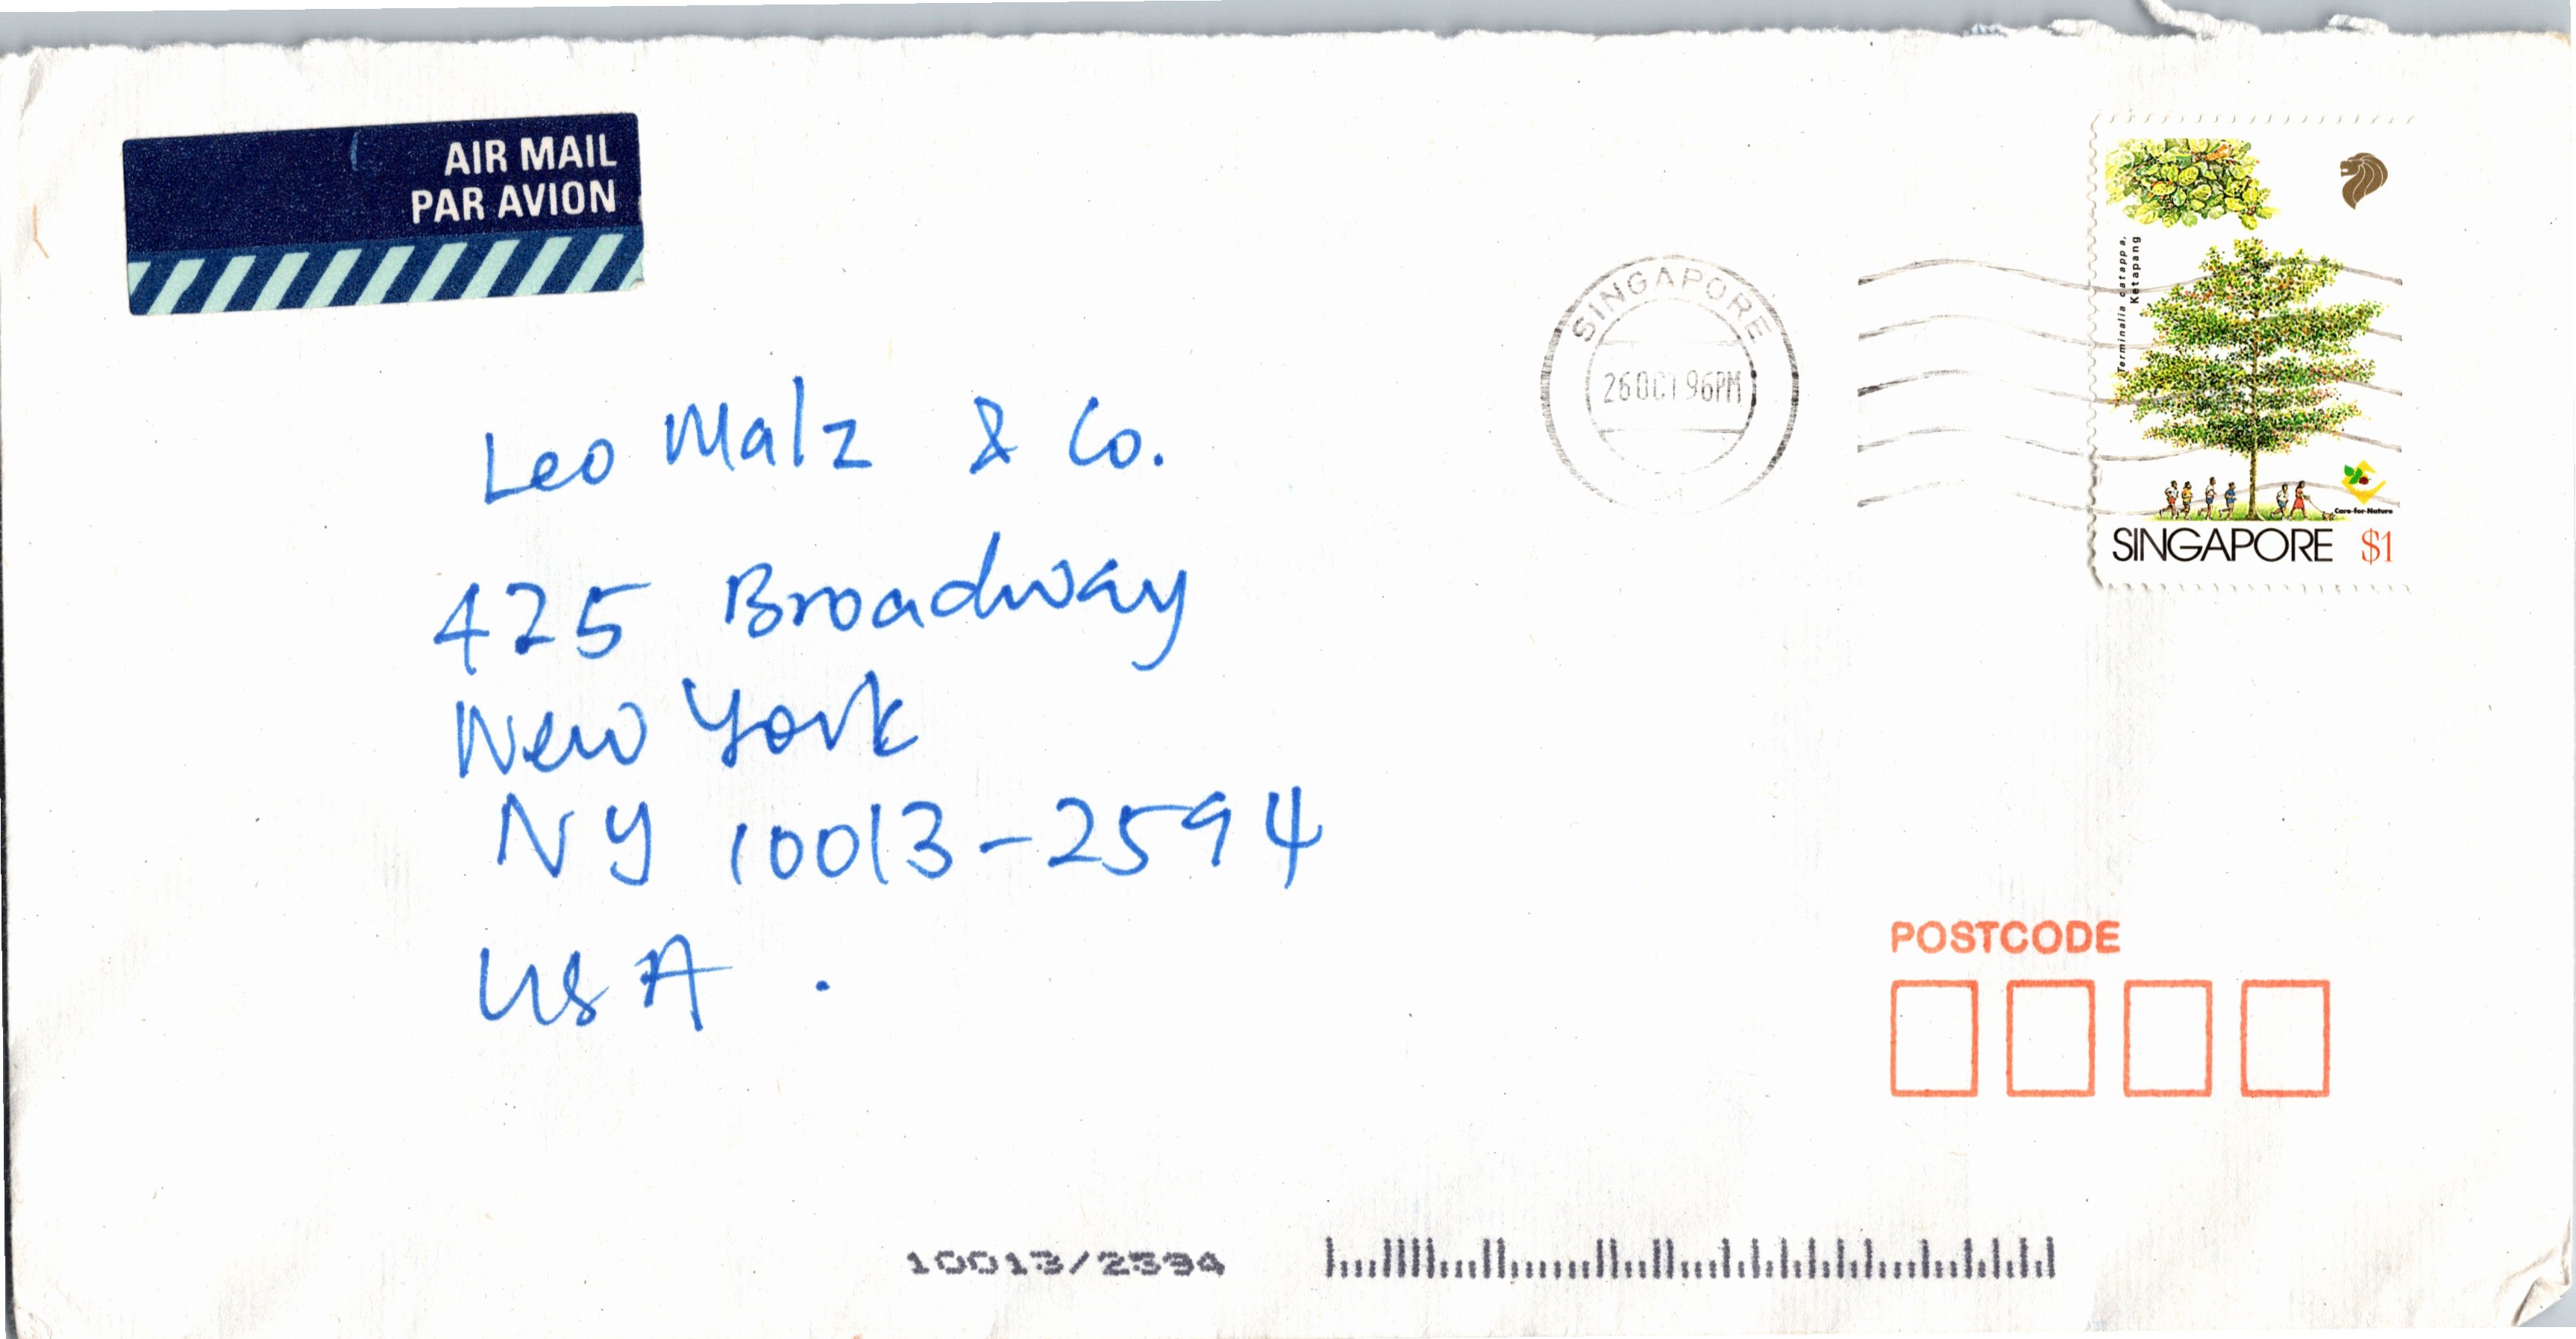 AIR MAIL
PAR AVION
SINGAPORE
26 OCT 96 PM
Terminalia catappa,
Ketapang
Care-for-Nature
SINGAPORE $1
Leo Malz & Co.
425 Broadway
New York
NY 10013-2594
USA.
POSTCODE
10013/2594